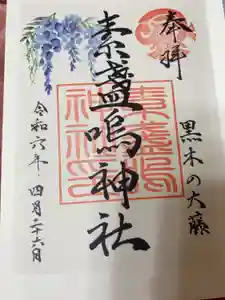 奉拝
黒木の大藤
素盞嗚神社
素盞嗚神社印
令和六年 四月二十六日